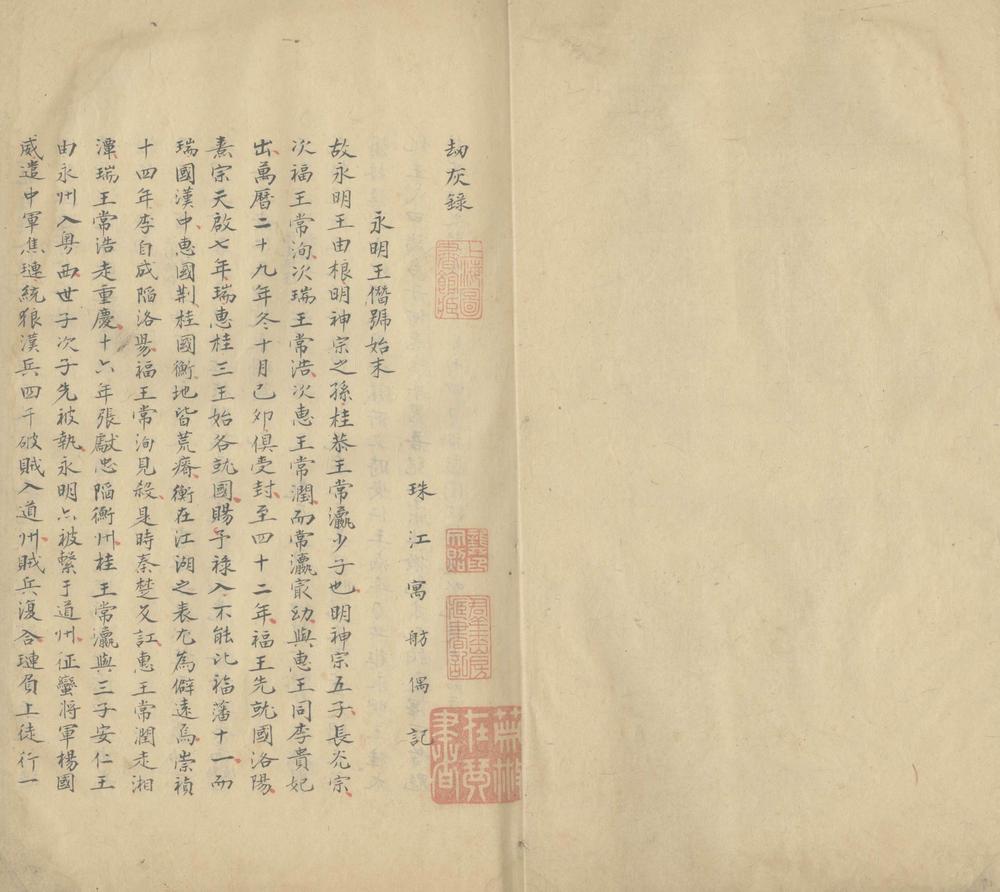 劫灰錄
永明王僭號始末
珠江寓舫偶記
故永明王由榔明神宗之孫桂恭王常瀛少子也明神宗五子長光宗
次福王常洵次瑞王常浩次惠王常潤而常瀛㝡幼與惠王同李貴妃
出萬曆二十九年冬十月己卯俱受封至四十二年福王先就國洛陽
熹宗天啟七年瑞惠桂三王始各就國賜予祿入不能比福藩十一而
瑞國漢中惠國荆桂國衡地皆荒瘠衡在江湖之表尤為僻遠焉崇禎
十四年李自成陷洛陽福王常洵見殺是時秦楚交訌惠王常潤走湘
潭瑞王常浩走重慶十六年張獻忠陷衡州桂王常瀛與三子安仁王
由永州入粤西世子次子先被執永明亦被繫于道州征蠻將軍楊國
威遣中軍焦璉統狼漢兵四千破賊入道州賊兵復合璉負上徒行一
上海圖書館藏